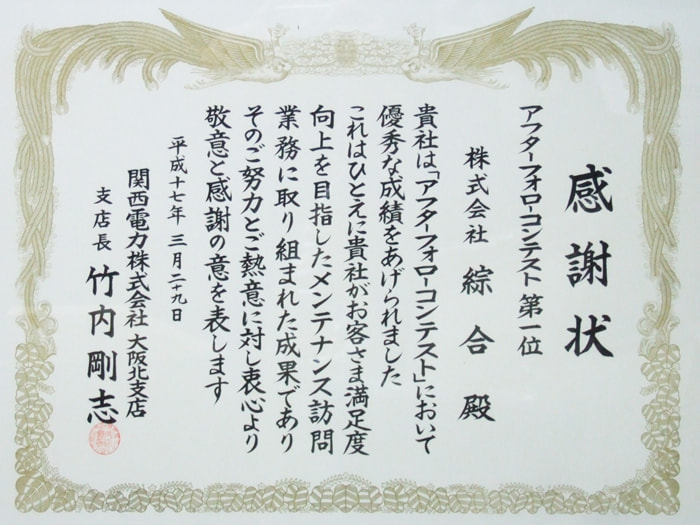 感謝状
アフターフォローコンテスト 第一位
株式会社 綜合 殿
貴社は「アフターフォローコンテスト」において
優秀な成績をあげられました
これはひとえに貴社がお客さま満足度
向上を目指したメンテナンス訪問
業務に取り組まれた成果であり
そのご努力とご熱意に対し衷心より
敬意と感謝の意を表します
平成十七年 三月二十九日
関西電力株式会社 大阪北支店
支店長 竹内剛志